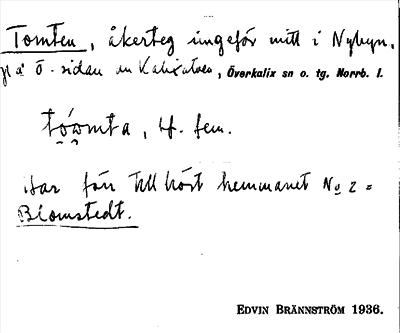 Tomten, åkerteg ungefär mitt i Nybyn.
på Ö. sidan om Kalixälven, Överkalix sn o. tg. Norrb. l.
tóòmta, 4. fem.
Har förr tillhört hemmanet No 2 =
Blomstedt.
EDVIN BRÄNNSTRÖM 1936.